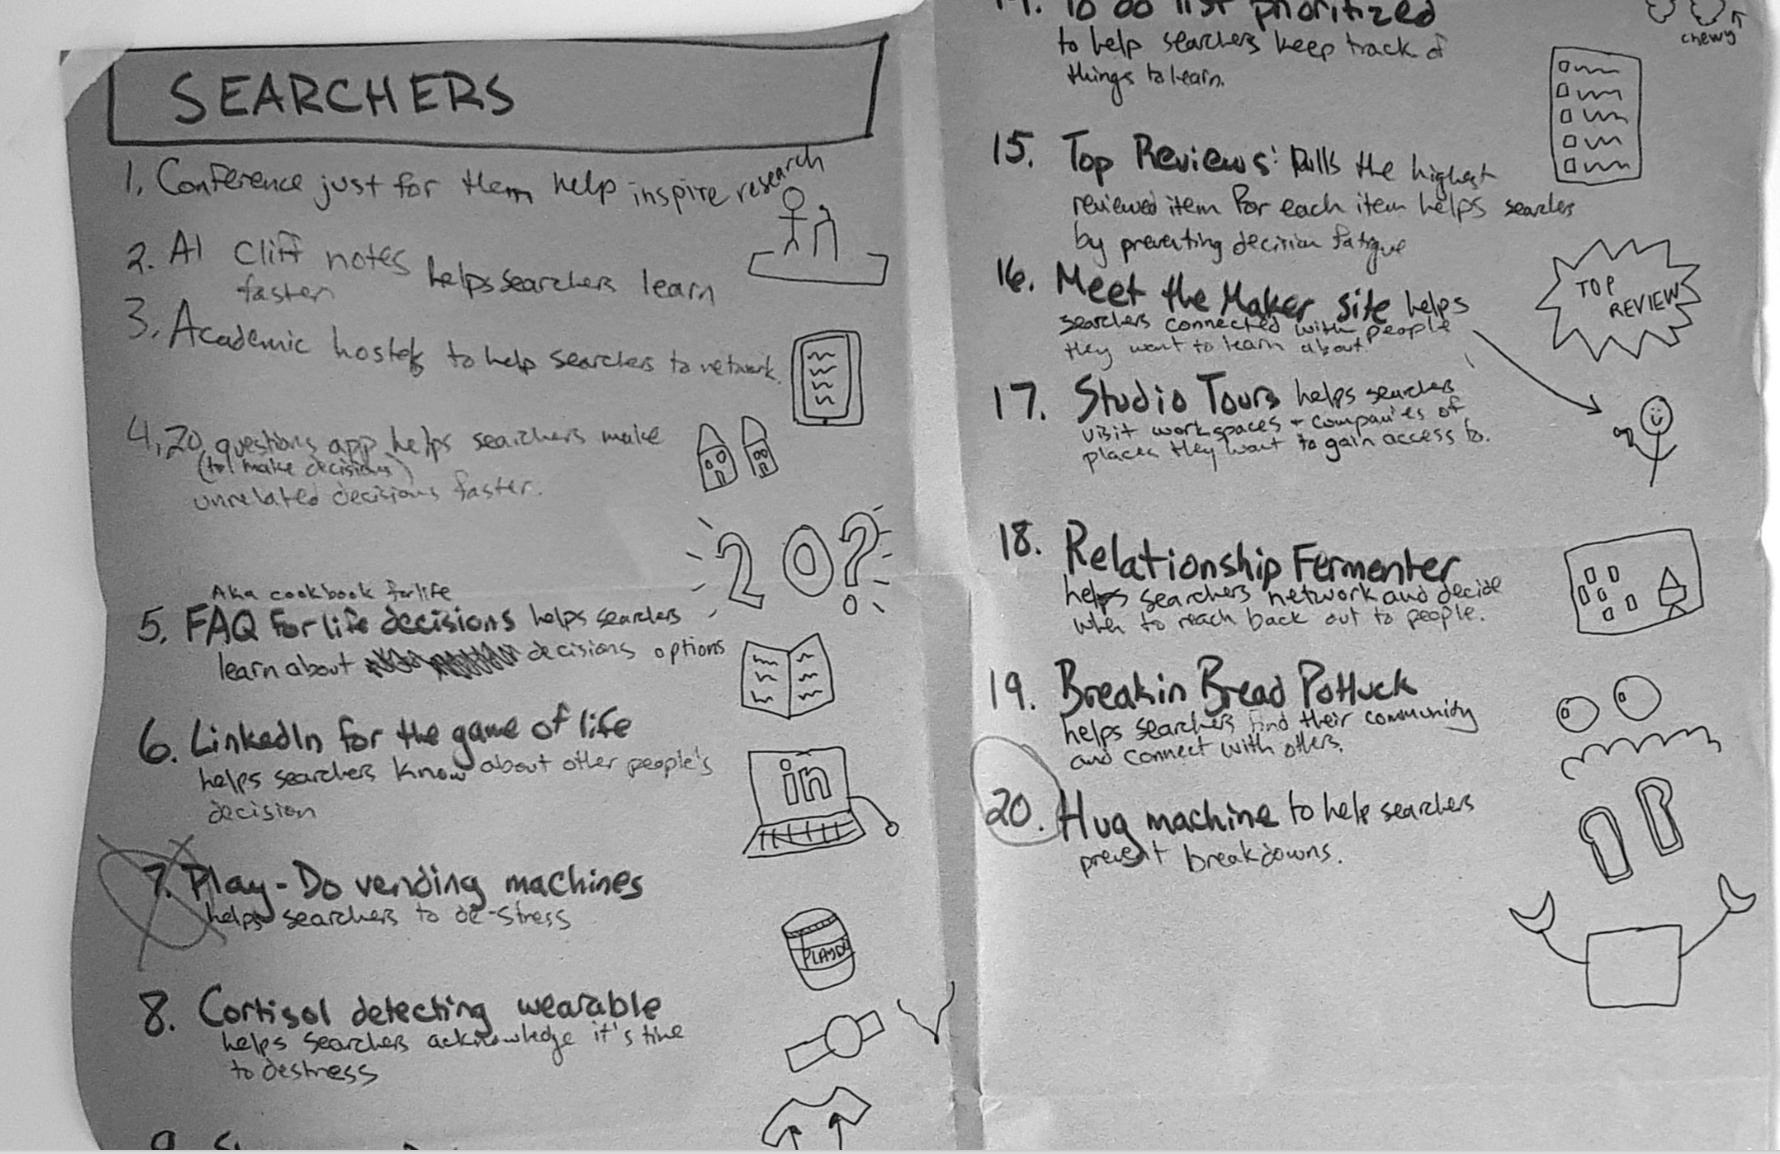 SEARCHERS
1. Conference just for them help inspire research
2. AI Cliff notes helps searchers learn
faster
3. Academic hostels to help searchers to network.
4. 20 questions app helps searchers make
(to make decisions)
unrelated decisions faster.
20?
Aka cookbook for life
5. FAQ for life decisions helps searchers
learn about decisions options
6. LinkedIn for the game of life
helps searchers know about other people's
decision
in
7. Play-Do vending machines
helps searchers to de-stress
PLAYDO
8. Cortisol detecting wearable
helps searchers acknowledge it's time
to destress
9.
14. To do list prioritized
to help searchers keep track of
things to learn.
chewy
15. Top Reviews: Pulls the highest
reviewed item for each item helps searches
by preventing decision fatigue
TOP
REVIEW
16. Meet the Maker site helps
searchers connected with people
they want to learn about.
17. Studio Tours helps searchers
visit workspaces + companies of
places they want to gain access to.
18. Relationship Fermenter
helps searchers network and decide
when to reach back out to people.
19. Breakin Bread Potluck
helps searchers find their community
and connect with others.
20. Hug machine to help searchers
prevent breakdowns.